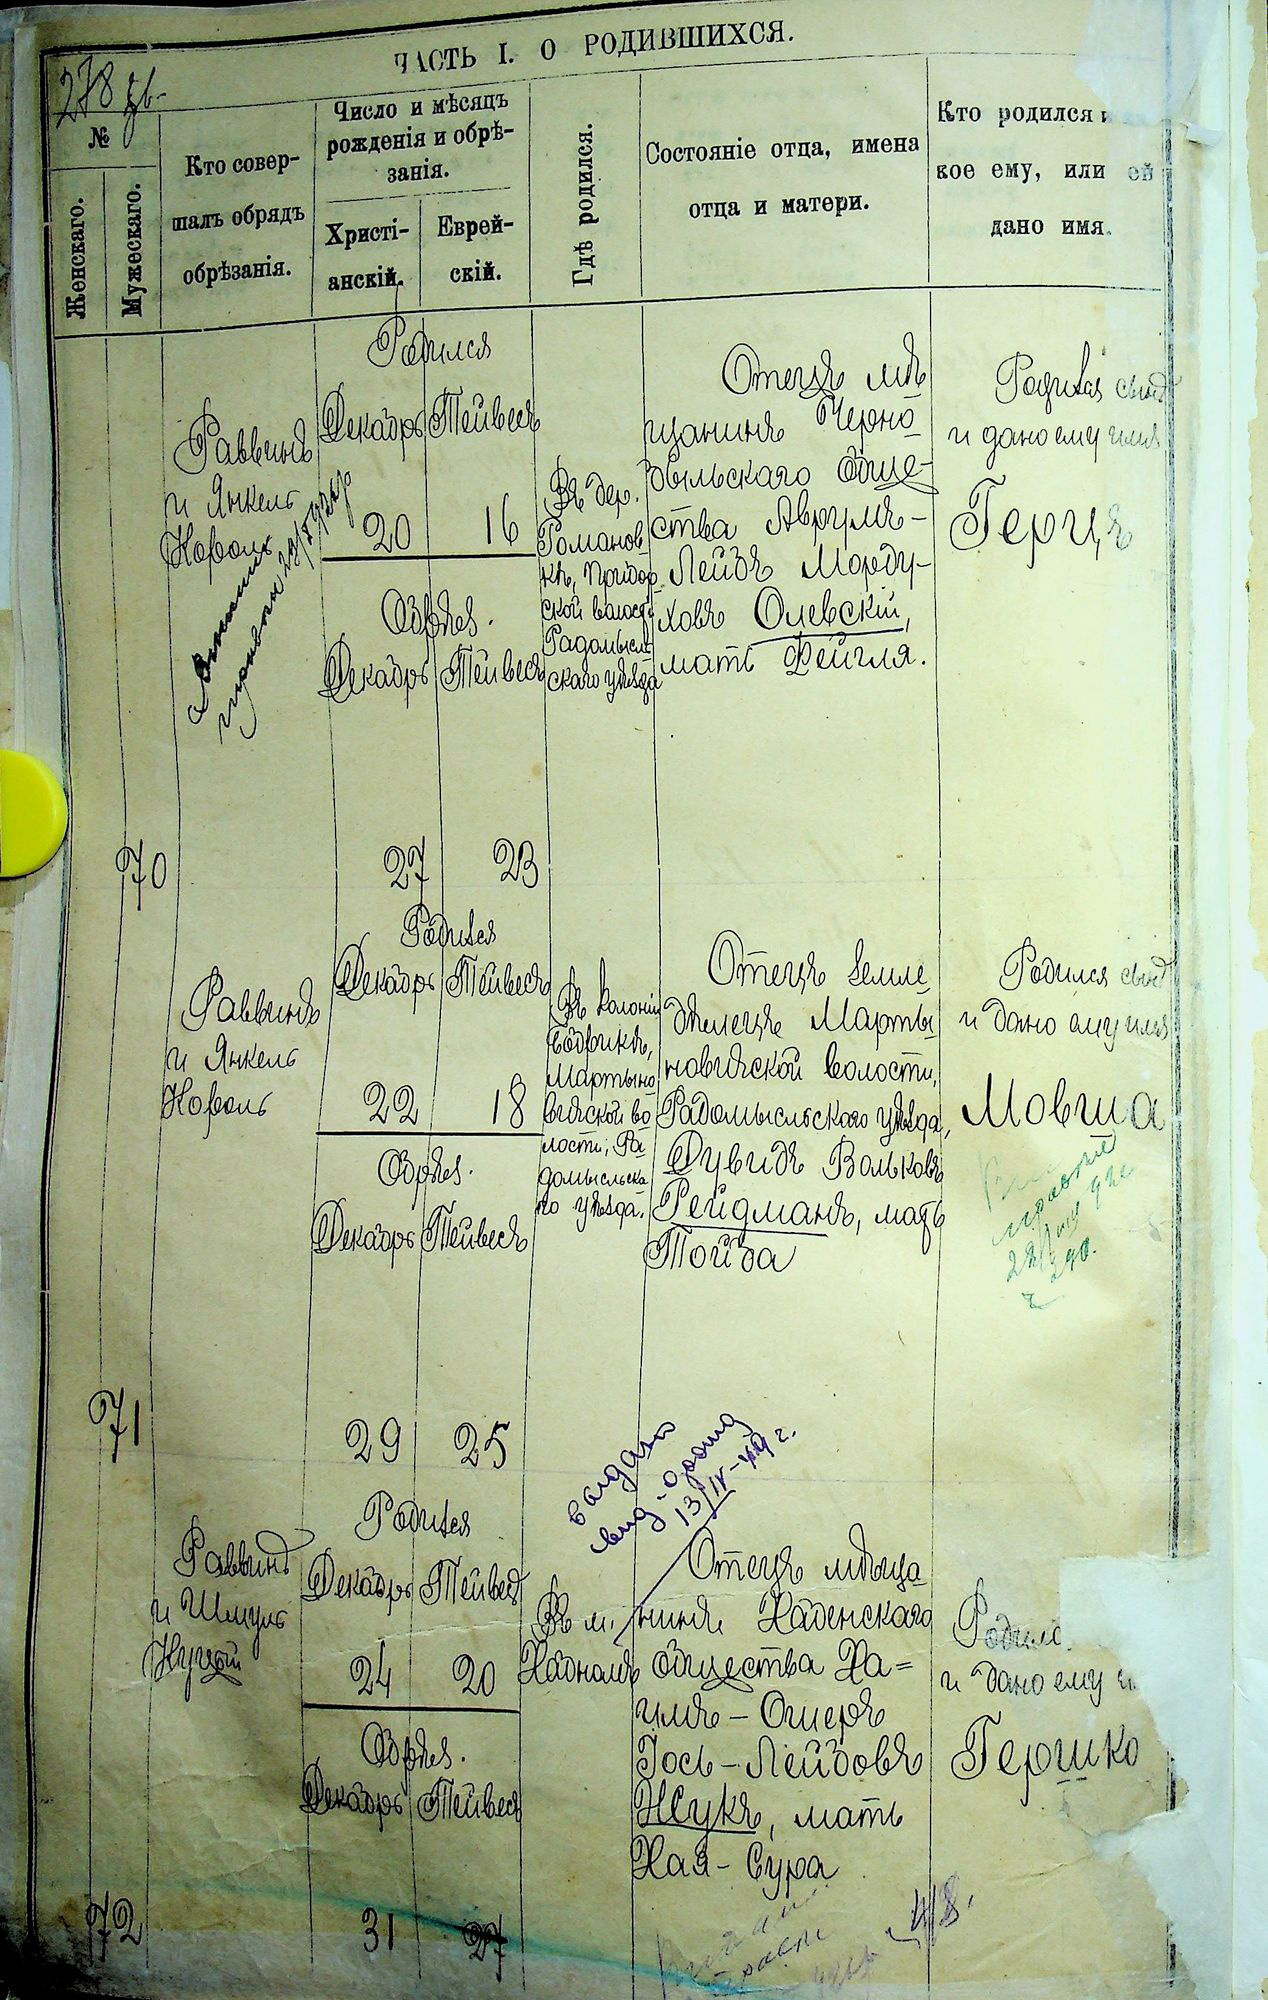 ЧАСТЬ I. О РОДИВШИХСЯ.
278
№
Женскаго.
Мужескаго.
Кто совер-
шалъ обрядъ
обрѣзанія.
Число и мѣсяцъ
рожденія и обрѣ-
занія.
Христі-
анскій.
Еврей-
скій.
Гдѣ родился.
Состояніе отца, имена
отца и матери.
Кто родился и
кое ему, или ей
дано имя.
70
Раввинъ
и Янкель
Король
Родился
Декабрь Тейвесъ
20 16
Обрѣз.
Декабрь Тейвесъ
27 23
Въ дер.
Романов
кѣ,
ской волост.
Радомысль
скаго уѣзда
Отецъ мѣ
щанинъ Черно
быльскаго обще-
ства Аврумъ-
Лейбъ Морду-
ховъ Олевскій,
мать Фейгля.
Родился сынъ
и дано ему имя
Герцъ
71
Раввинъ
и Янкель
Король
Родился
Декабрь Тейвесъ
22 18
Обрѣз.
Декабрь Тейвесъ
29 25
Въ колоніи
Мартыно
вичской во
лости, Ра
домысльска
го уѣзда.
Отецъ земле
дѣлецъ Марты
новичской волости,
Радомысльскаго уѣзда,
Дувидъ Вольковъ
Фейдманъ, мать
Тойба
Родился сынъ
и дано ему имя
Мовша
72
Раввинъ
и Шмуль
Родился
Декабрь Тейвес
24 20
Обрѣз.
Декабрь Тейвесъ
31 27
Въ м.
Хабномъ
выдана
13/IV
Отецъ мѣща
нинъ Хабенскаго
общества Ха=
имъ-Ошеръ
Іось-Лейбовъ
Жукъ, мать
Хая-Сура
Родилс
и дано ему и
Гершко